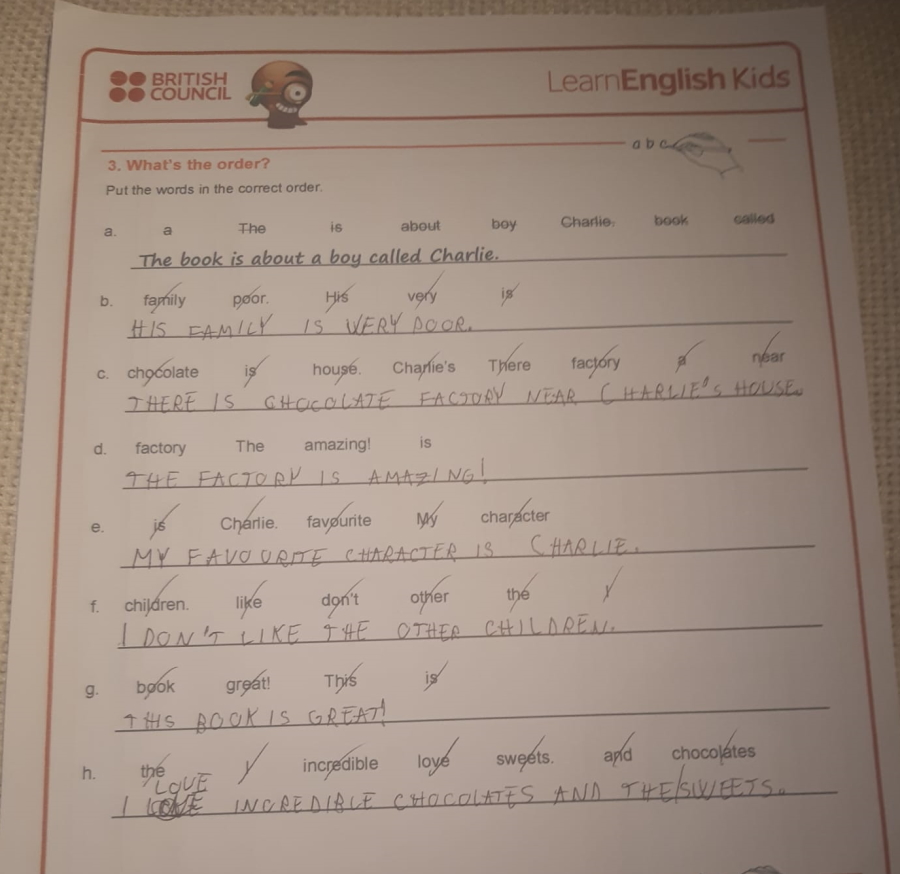 BRITISH
COUNCIL
LearnEnglish Kids
a b c
3. What's the order?
Put the words in the correct order.
a. a The is about boy Charlie. book called
The book is about a boy called Charlie.
b. family poor. His very is
HIS FAMILY IS VERY POOR.
c. chocolate is house. Charlie's There factory a near
THERE IS CHOCOLATE FACTORY NEAR CHARLIE'S HOUSE.
d. factory The amazing! is
THE FACTORY IS AMAZING!
e. is Charlie. favourite My character
MY FAVOURITE CHARACTER IS CHARLIE.
f. children. like don't other the I
I DON'T LIKE THE OTHER CHILDREN.
g. book great! This is
THIS BOOK IS GREAT!
h. the I incredible love sweets. and chocolates
LOVE
I LOVE INCREDIBLE CHOCOLATES AND THE SWEETS.